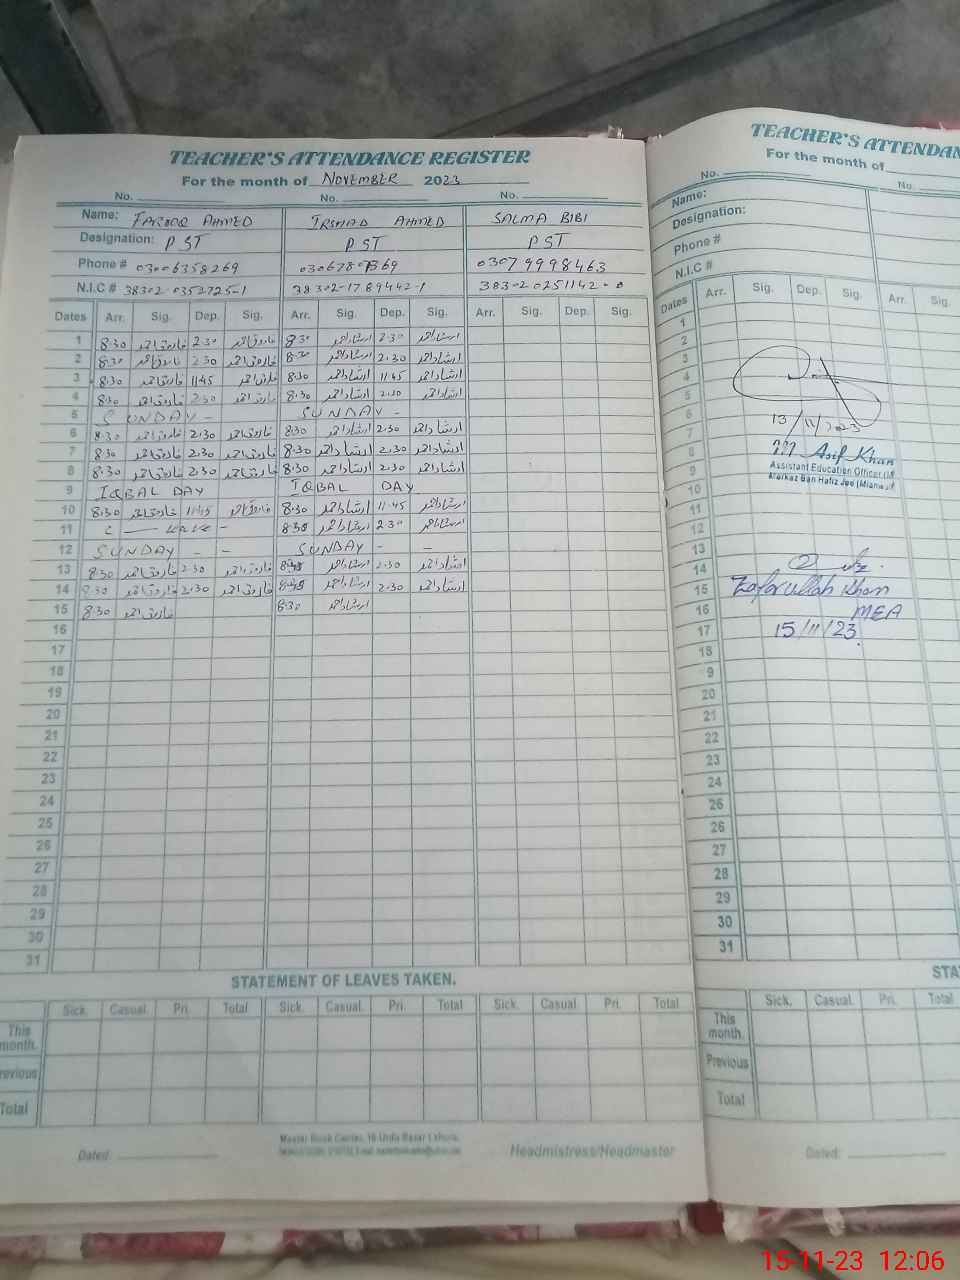 TEACHER'S ATTENDANCE REGISTER
For the month of NOVEMBER 2023
No. No. No.
Name: FAROOQ AHMED IRSHAD AHMED SALMA BIBI
Designation: PST PST PST
Phone # 03006358269 03079998463
N.I.C # 38302-0352725-1 38302-1789442-1
Dates Arr. Sig. Dep. Sig. Arr. Sig. Dep. Sig. Arr. Sig. Dep. Sig.
1 8:30 فاروق احمد 2:30 فاروق احمد 8:30 ارشاد احمد 2:30 ارشاد احمد
2 8:30 فاروق احمد 2:30 فاروق احمد 8:30 ارشاد احمد 2:30 ارشاد احمد
3 8:30 فاروق احمد 11:45 فاروق احمد 8:30 ارشاد احمد 11:45 ارشاد احمد
4 8:30 فاروق احمد 2:30 فاروق احمد 8:30 ارشاد احمد 2:30 ارشاد احمد
5 SUNDAY - SUNDAY -
6 8:30 فاروق احمد 2:30 فاروق احمد 8:30 ارشاد احمد 2:30 ارشاد احمد
7 8:30 فاروق احمد 2:30 فاروق احمد 8:30 ارشاد احمد 2:30 ارشاد احمد
8 8:30 فاروق احمد 2:30 فاروق احمد 8:30 ارشاد احمد 2:30 ارشاد احمد
9 IQBAL DAY IQBAL DAY
10 8:30 فاروق احمد 11:45 فاروق احمد 8:30 ارشاد احمد 11:45 ارشاد احمد
11 c — leave - 8:30 ارشاد احمد 2:30 ارشاد احمد
12 SUNDAY - - SUNDAY - -
13 8:30 فاروق احمد 2:30 فاروق احمد ارشاد احمد 2:30 ارشاد احمد
14 8:30 فاروق احمد 2:30 فاروق احمد ارشاد احمد 2:30 ارشاد احمد
15 8:30 فاروق احمد 8:30 ارشاد احمد
16
17
18
19
20
21
22
23
24
25
26
27
28
29
30
31
STATEMENT OF LEAVES TAKEN.
Sick. Casual. Pri. Total Sick. Casual. Pri. Total Sick. Casual. Pri. Total
This month.
Previous
Total
Master Book Center, 16-Urdu Bazar Lahore.
Dated: Headmistress/Headmaster
TEACHER'S ATTENDAN
For the month of
No. No.
Name:
Designation:
Phone #
N.I.C #
Dates Arr. Sig. Dep. Sig. Arr. Sig.
1
2
3
4
5
6 13/11/2023
7
8 M Asif Khan
9 Assistant Education Officer (M
10 Markaz Ban Hafiz Jee (Mianwali
11
12
13
14
15 Zafarullah Khan
16 MEA
17 15/11/23
18
9
20
21
22
23
24
26
26
27
28
29
30
31
STA
Sick. Casual. Pri. Total
This month.
Previous
Total
Dated:
15-11-23 12:06